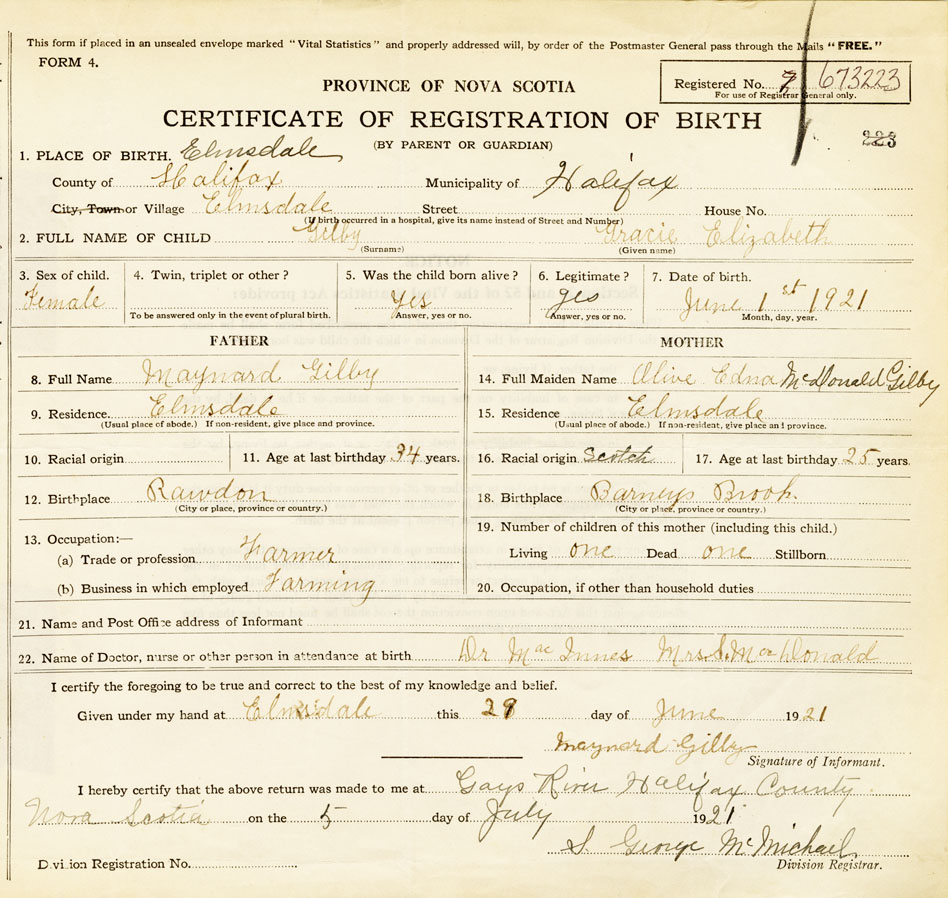 This form if placed in an unsealed envelope marked "Vital Statistics" and properly addressed will, by order of the Postmaster General pass through the Mails "FREE."
FORM 4.
PROVINCE OF NOVA SCOTIA
Registered No. 673223
For use of Registrar General only.
CERTIFICATE OF REGISTRATION OF BIRTH
(BY PARENT OR GUARDIAN)
223
1. PLACE OF BIRTH. Elmsdale
County of Halifax Municipality of Halifax
City, Town or Village Elmsdale Street House No.
(If birth occurred in a hospital, give its name instead of Street and Number)
2. FULL NAME OF CHILD Gilby Gracie Elizabeth
(Surname) (Given name)
3. Sex of child. 4. Twin, triplet or other? 5. Was the child born alive? 6. Legitimate? 7. Date of birth.
Female Yes yes June 1st 1921
To be answered only in the event of plural birth. Answer, yes or no. Answer, yes or no. Month, day, year.
FATHER MOTHER
8. Full Name Maynard Gilby 14. Full Maiden Name Olive Edna McDonald Gilby
9. Residence. Elmsdale 15. Residence Elmsdale
(Usual place of abode.) If non-resident, give place and province. (Usual place of abode.) If non-resident, give place and province.
10. Racial origin 11. Age at last birthday 34 years. 16. Racial origin Scotch 17. Age at last birthday 25 years.
12. Birthplace Rawdon 18. Birthplace Barneys Brook.
(City or place, province or country.) (City or place, province or country.)
13. Occupation:— 19. Number of children of this mother (including this child.)
(a) Trade or profession Farmer Living one Dead one Stillborn
(b) Business in which employed Farming 20. Occupation, if other than household duties
21. Name and Post Office address of Informant
22. Name of Doctor, nurse or other person in attendance at birth Dr MacInnes Mrs. S. MacDonald
I certify the foregoing to be true and correct to the best of my knowledge and belief.
Given under my hand at Elmsdale this 29 day of June 1921
Maynard Gilby
Signature of Informant.
I hereby certify that the above return was made to me at Gays River Halifax County
Nova Scotia on the 5 day of July 1921
S George McMichael
Division Registration No. Division Registrar.